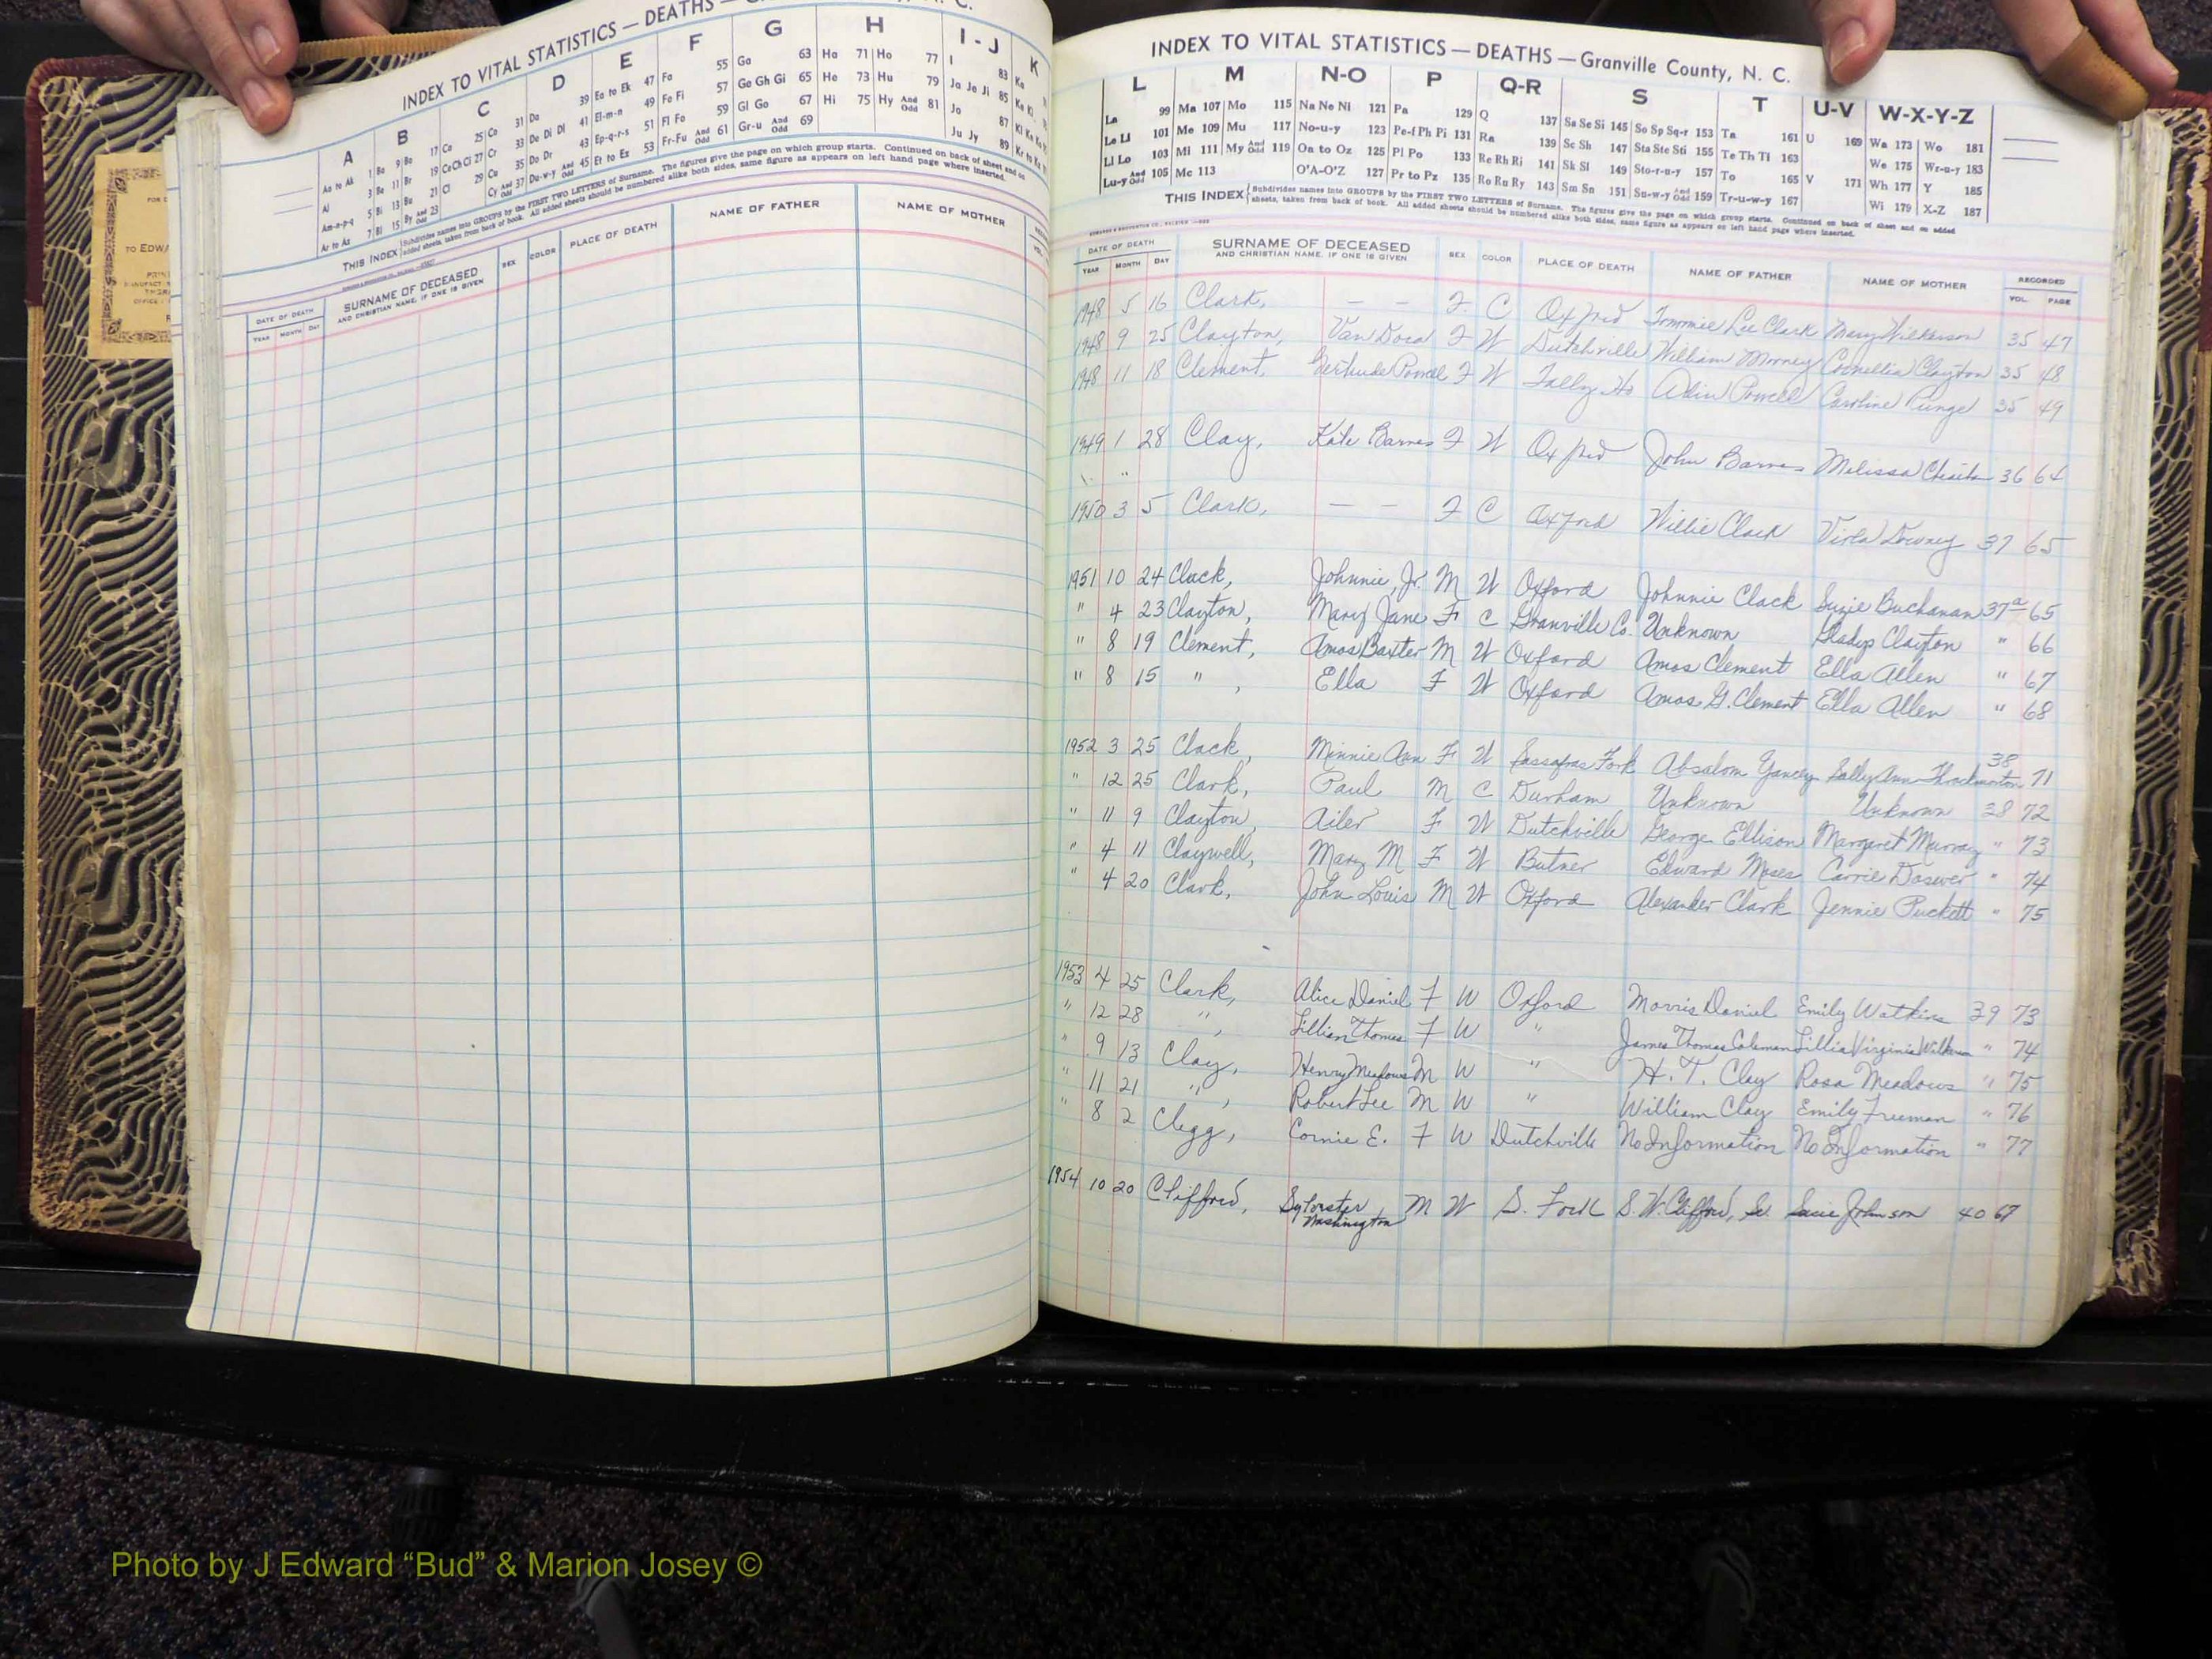 INDEX TO VITAL STATISTICS — DEATHS —
A B C D E F G H I - J K
THIS INDEX Subdivides names into GROUPS by the FIRST TWO LETTERS of Surname. The figures give the page on which group starts. Continued on back of sheet and on
added sheets, taken from back of book. All added sheets should be numbered alike both sides, same figure as appears on left hand page where inserted.
DATE OF DEATH SURNAME OF DECEASED SEX COLOR PLACE OF DEATH NAME OF FATHER NAME OF MOTHER
YEAR MONTH DAY AND CHRISTIAN NAME, IF ONE IS GIVEN
INDEX TO VITAL STATISTICS — DEATHS — Granville County, N. C.
L M N-O P Q-R S T U-V W-X-Y-Z
La 99 Ma 107 Mo 115 Na Ne Ni 121 Pa 129 Q 137 Sa Se Si 145 So Sp Sq-r 153 Ta 161 U 169 Wa 173 Wo 181
Le Li 101 Me 109 Mu 117 No-u-y 123 Pe-f Ph Pi 131 Ra 139 Sc Sh 147 Sta Ste Sti 155 Te Th Ti 163 We 175 Wr-u-y 183
Ll Lo 103 Mi 111 My And Odd 119 Oa to Oz 125 Pl Po 133 Re Rh Ri 141 Sk Sl 149 Sto-r-u-y 157 To 165 V 171 Wh 177 Y 185
Lu-y And Odd 105 Mc 113 O'A-O'Z 127 Pr to Pz 135 Ro Ru Ry 143 Sm Sn 151 Su-w-y And Odd 159 Tr-u-w-y 167 Wi 179 X-Z 187
THIS INDEX Subdivides names into GROUPS by the FIRST TWO LETTERS of Surname. The figures give the page on which group starts. Continued on back of sheet and on added
sheets, taken from back of book. All added sheets should be numbered alike both sides, same figure as appears on left hand page where inserted.
DATE OF DEATH SURNAME OF DECEASED SEX COLOR PLACE OF DEATH NAME OF FATHER NAME OF MOTHER RECORDED
YEAR MONTH DAY AND CHRISTIAN NAME, IF ONE IS GIVEN VOL. PAGE
1948 5 16 Clark, — — F C Oxford Tommie Lee Clark Mary Wilkerson 35 47
1948 9 25 Clayton, Van Dora F W Dutchville William Cornellia Clayton 35 48
1948 11 18 Clement, Gertrude Powell F W Tally Ho Powell Caroline 35 49
1949 1 28 Clay, Kate Barnes F W Oxford John Barnes Melissa 36 64
1950 3 5 Clark, — — F C Oxford Willie Clark Viola Downey 37 65
1951 10 24 Clack, Johnnie, Jr. M W Oxford Johnnie Clack Suzie Buchanan 37a 65
" 4 23 Clayton, Mary Jane F C Granville Co. Unknown Gladys Clayton " 66
" 8 19 Clement, Amos Baxter M W Oxford Amos Clement Ella Allen " 67
" 8 15 " , Ella F W Oxford Amos G. Clement Ella Allen " 68
1952 3 25 Clack, Minnie Ann F W Sassafras Fork Absalom Yancey Sally Ann Throckmorton 38 71
" 12 25 Clark, Paul M C Durham Unknown Unknown 38 72
" 11 9 Clayton, Ailer F W Dutchville George Ellison Margaret Murray " 73
" 4 11 Claywell, Mary M F W Butner Edward Moses Carrie " 74
" 4 20 Clark, John Louis M W Oxford Alexander Clark Jennie Puckett " 75
1953 4 25 Clark, Alice Daniel F W Oxford Morris Daniel Emily Watkins 39 73
" 12 28 " , Lillian Thomas F W " James Thomas Coleman Lillia Virginia " 74
" 9 13 Clay, Henry Meadows M W " H. T. Clay Rosa Meadows " 75
" 11 21 " , Robert Lee M W " William Clay Emily Freeman " 76
" 8 2 Clegg, Cornie E. F W Dutchville No Information No Information " 77
1954 10 20 Clifford, Sylvester Washington M W S. Fork S. W. Clifford, Sr. Susie Johnson 40 67
Photo by J Edward “Bud” & Marion Josey ©